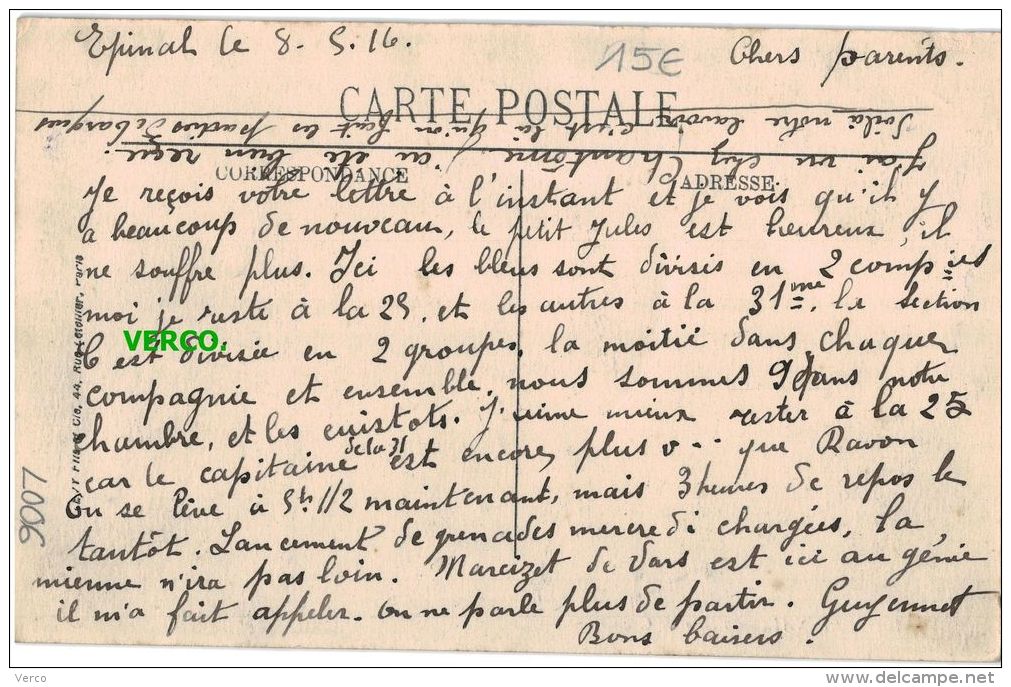 Epinal le 8. 5. 16.
15€
Chers parents.
CARTE POSTALE
Voilà notre lavoir c'est là qu'on fait les parties de barques
J'ai vu chez Chantome j'ai été bien reçu.
CORRESPONDANCE
ADRESSE
Je reçois votre lettre à l'instant et je vois qu'il y
a beaucoup de nouveau, le petit Jules est heureux, il
ne souffre plus. Ici les bleus sont divisés en 2 compies
moi je reste à la 25, et les autres à la 31me, le section
C est divisée en 2 groupes, la moitié dans chaque
compagnie et ensemble, nous sommes 9 dans notre
chambre, et les cuistots. J'aime mieux rester à la 25
car le capitaine de la 31 est encore plus v... que Ravon
On se lève à 5h 1/2 maintenant, mais 3 heures de repos le
tantôt. Lancement de grenades mercredi chargées, la
mienne n'ira pas loin. Marcizet de Vars est ici au génie
il m'a fait appeler. On ne parle plus de partir. Guyennet
Bons baisers.
44, Rue Letellier, Paris
VERCO.
9007
Verco
http://www.delcampe.net